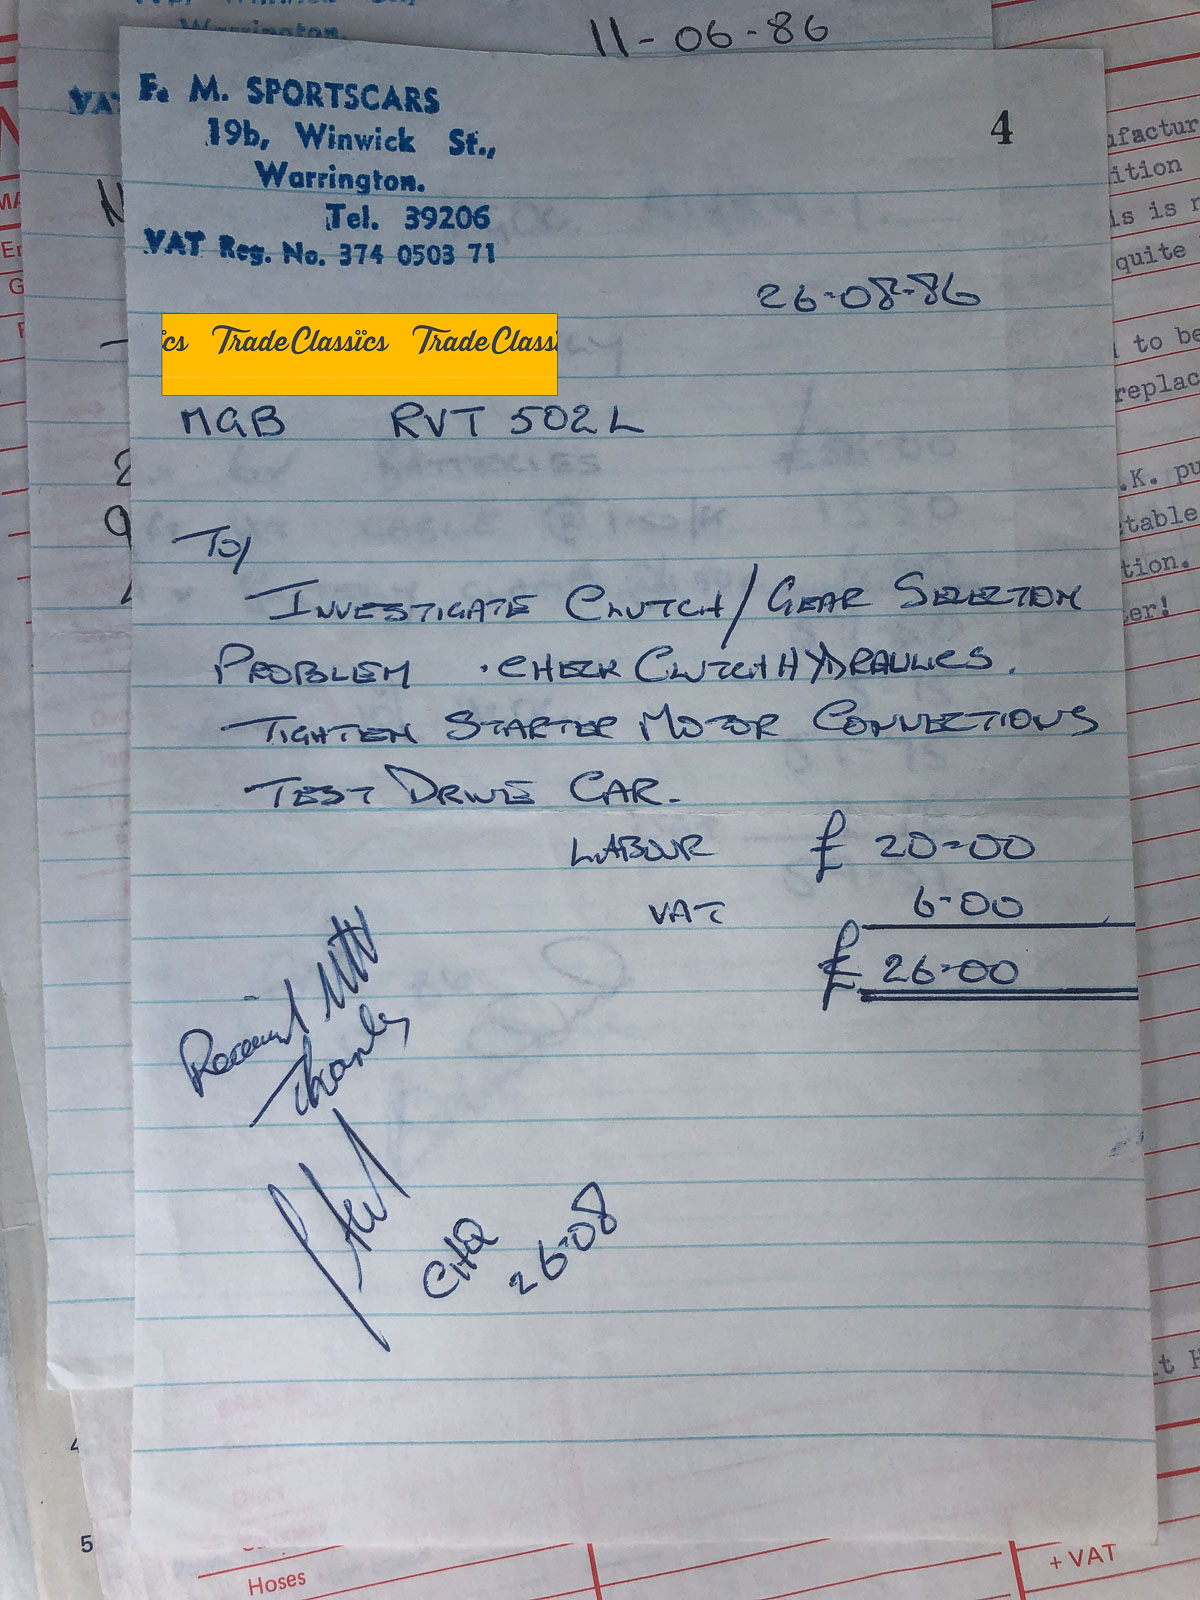 11-06-86
Warrington.
VAT
F. M. SPORTSCARS
19b, Winwick St.,
Warrington.
Tel. 39206
VAT Reg. No. 374 0503 71
4
26-08-86
ics TradeClassics TradeClassi
MGB RVT 502L
To/
INVESTIGATE CLUTCH/GEAR SELECTION
PROBLEM . CHECK CLUTCH HYDRAULICS.
TIGHTEN STARTER MOTOR CONNECTIONS
TEST DRIVE CAR.
LABOUR £ 20-00
VAT 6-00
£ 26-00
Received With
Thanks
CHQ
26-08
ufactur
ition
is is
quite
to be
replac
.K. pu
table
tion.
er!
t H
4
5
Hoses
+ VAT